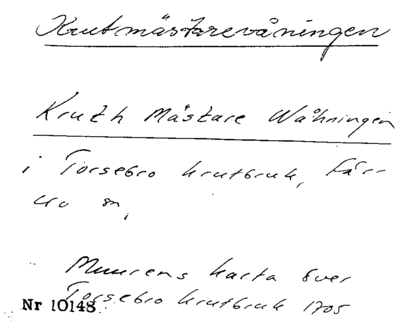 Krutmästarevåningen
Kruth Mästare Wåhningen
i Torsebro krutbruk, Fär-
löv sn,
Muurens karta över
Torsebro krutbruk 1705
Nr 10148